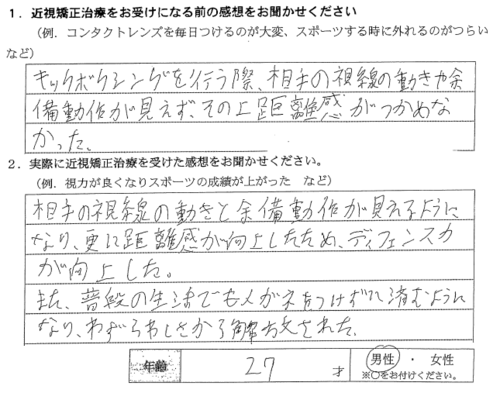 1．近視矯正治療をお受けになる前の感想をお聞かせください
（例．コンタクトレンズを毎日つけるのが大変、スポーツする時に外れるのがつらい
など）
キックボクシングを行う際、相手の視線の動きや余
備動作が見えず、その上距離感がつかめな
かった。
2．実際に近視矯正治療を受けた感想をお聞かせください。
（例．視力が良くなりスポーツの成績が上がった　など）
相手の視線の動きと余備動作が見えるように
なり、更に距離感が向上したため、ディフェンス力
が向上した。
また、普段の生活でもメガネをつけずに済むように
なり、わずらわしさから解放された。
年齢　27　才　男性　・　女性
※○をお付けください。